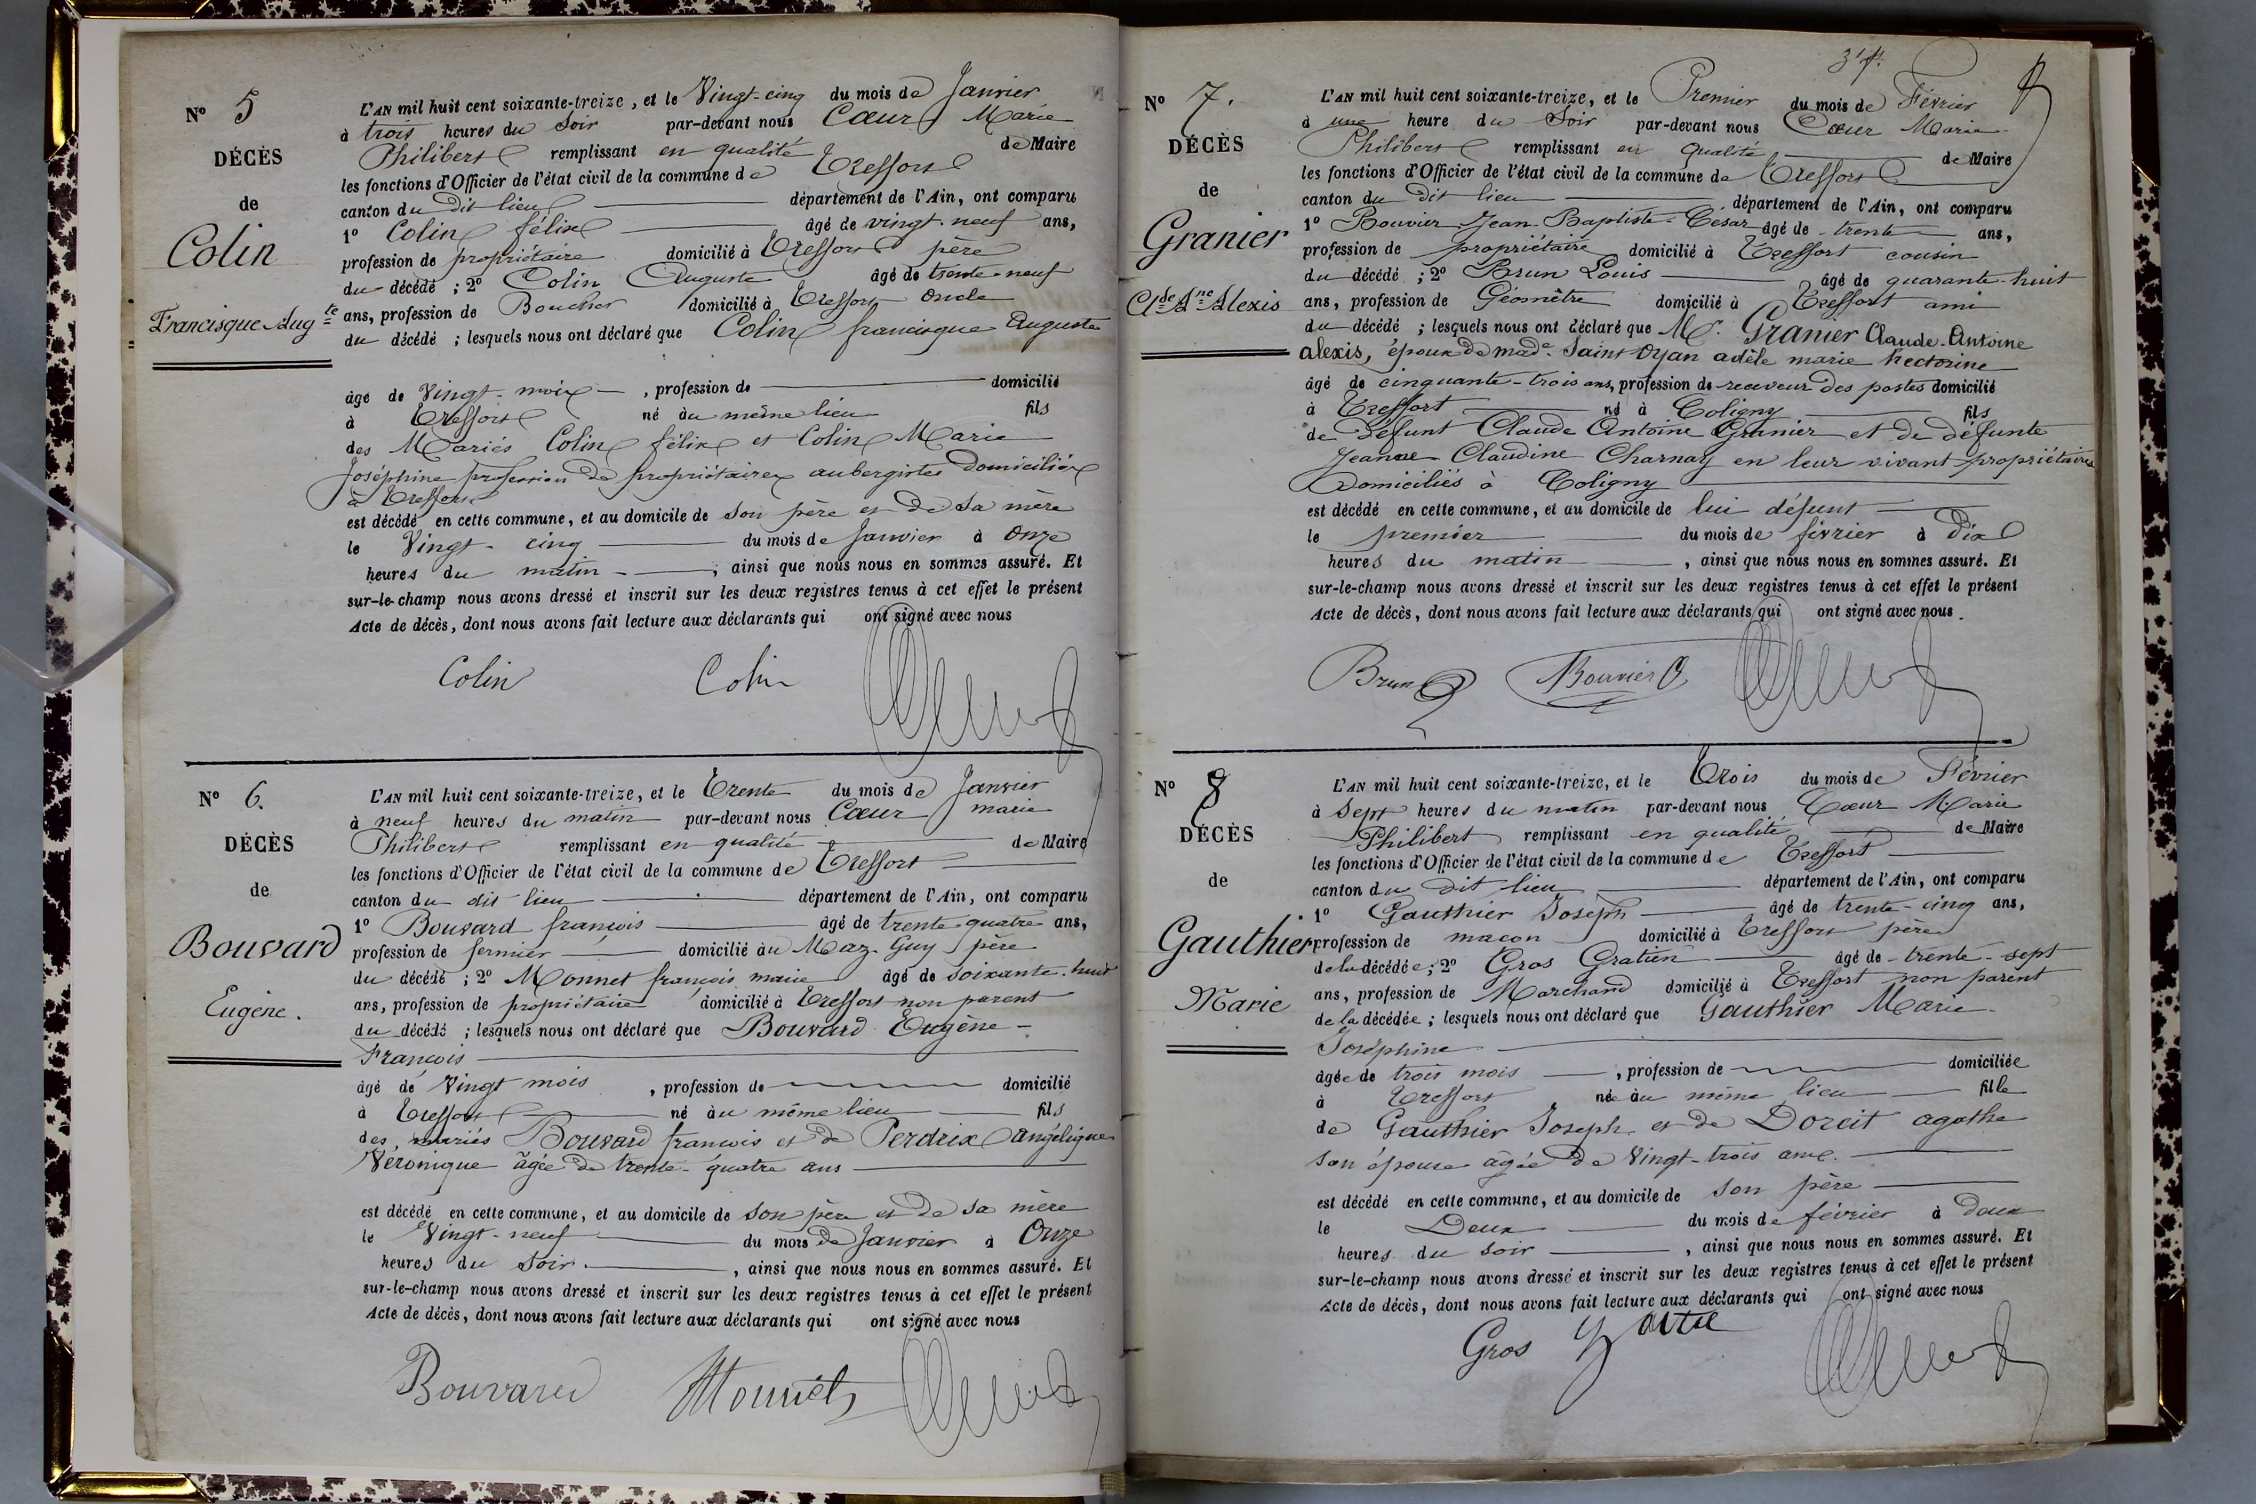 N° 5
DÉCÈS
de
Colin
Francisque Aug.te
L'AN mil huit cent soixante-treize, et le Vingt-cinq du mois de Janvier
à trois heures du Soir par-devant nous Cœur Marie
Philibert remplissant en qualité de Maire
les fonctions d'Officier de l'état civil de la commune de Treffort
canton du dit lieu département de l'Ain, ont comparu
1° Colin félix âgé de vingt-neuf ans,
profession de propriétaire domicilié à Treffort père
du décédé ; 2° Colin Auguste âgé de trente-neuf
ans, profession de Boucher domicilié à Treffort oncle
du décédé ; lesquels nous ont déclaré que Colin francisque Auguste
âgé de Vingt-mois, profession de domicilié
à Treffort né au même lieu fils
des Mariés Colin félix et Colin Marie
Joséphine profession de propriétaires aubergistes domiciliés
à Treffort
est décédé en cette commune, et au domicile de son père et de sa mère
le Vingt-cinq du mois de Janvier à Onze
heures du matin, ainsi que nous nous en sommes assuré. Et
sur-le-champ nous avons dressé et inscrit sur les deux registres tenus à cet effet le présent
Acte de décès, dont nous avons fait lecture aux déclarants qui ont signé avec nous
Colin Colin
N° 6.
DÉCÈS
de
Bouvard
Eugène.
L'AN mil huit cent soixante-treize, et le Trente du mois de Janvier
à neuf heures du matin par-devant nous Cœur marie
Philibert remplissant en qualité de Maire
les fonctions d'Officier de l'état civil de la commune de Treffort
canton du dit lieu département de l'Ain, ont comparu
1° Bouvard françois âgé de trente quatre ans,
profession de fermier domicilié au Maz-Guy père
du décédé ; 2° Monnet françois marie âgé de soixante-huit
ans, profession de propriétaire domicilié à Treffort non parent
du décédé ; lesquels nous ont déclaré que Bouvard Eugène
François
âgé de Vingt mois, profession de domicilié
à Treffort né au même lieu fils
des mariés Bouvard françois et de Perdrix Angélique
Véronique âgée de trente-quatre ans
est décédé en cette commune, et au domicile de son père et de sa mère
le Vingt-neuf du mois de Janvier à Onze
heures du soir, ainsi que nous nous en sommes assuré. Et
sur-le-champ nous avons dressé et inscrit sur les deux registres tenus à cet effet le présent
Acte de décès, dont nous avons fait lecture aux déclarants qui ont signé avec nous
Bouvard Monnet
N° 7.
DÉCÈS
de
Granier
Cl.de A.ne Alexis
L'AN mil huit cent soixante-treize, et le Premier du mois de Février
à une heure du Soir par-devant nous Cœur Marie
Philibert remplissant en qualité de Maire
les fonctions d'Officier de l'état civil de la commune de Treffort
canton du dit lieu département de l'Ain, ont comparu
1° Bouvier Jean-Baptiste-César âgé de trente ans,
profession de propriétaire domicilié à Treffort cousin
du décédé ; 2° Brun Louis âgé de quarante-huit
ans, profession de Géomètre domicilié à Treffort ami
du décédé ; lesquels nous ont déclaré que Mr. Granier Claude-Antoine
alexis, époux de made. Saint Oyan adèle marie hectorine
âgé de cinquante-trois ans, profession de receveur des postes domicilié
à Treffort né à Coligny fils
de défunt Claude Antoine Granier et de défunte
Jeanne Claudine Charnay en leur vivant propriétaires
domiciliés à Coligny
est décédé en cette commune, et au domicile de lui défunt
le premier du mois de février à Dix
heures du matin, ainsi que nous nous en sommes assuré. Et
sur-le-champ nous avons dressé et inscrit sur les deux registres tenus à cet effet le présent
Acte de décès, dont nous avons fait lecture aux déclarants qui ont signé avec nous.
Brun Bouvier
N° 8
DÉCÈS
de
Gauthier
Marie
L'AN mil huit cent soixante-treize, et le Trois du mois de Février
à Sept heures du matin par-devant nous Cœur Marie
Philibert remplissant en qualité de Maire
les fonctions d'Officier de l'état civil de la commune de Treffort
canton du dit lieu département de l'Ain, ont comparu
1° Gauthier Joseph âgé de trente-cinq ans,
profession de maçon domicilié à Treffort père
de la décédée ; 2° Gros Gratien âgé de trente-sept
ans, profession de Marchand domicilié à Treffort non parent
de la décédée ; lesquels nous ont déclaré que Gauthier Marie
Joséphine
âgée de trois mois, profession de domiciliée
à Treffort née au même lieu fille
de Gauthier Joseph et de Doreit agathe
son épouse âgée de Vingt-trois ans.
est décédé en cette commune, et au domicile de son père
le Deux du mois de février à deux
heures du soir, ainsi que nous nous en sommes assuré. Et
sur-le-champ nous avons dressé et inscrit sur les deux registres tenus à cet effet le présent
Acte de décès, dont nous avons fait lecture aux déclarants qui ont signé avec nous
Gros